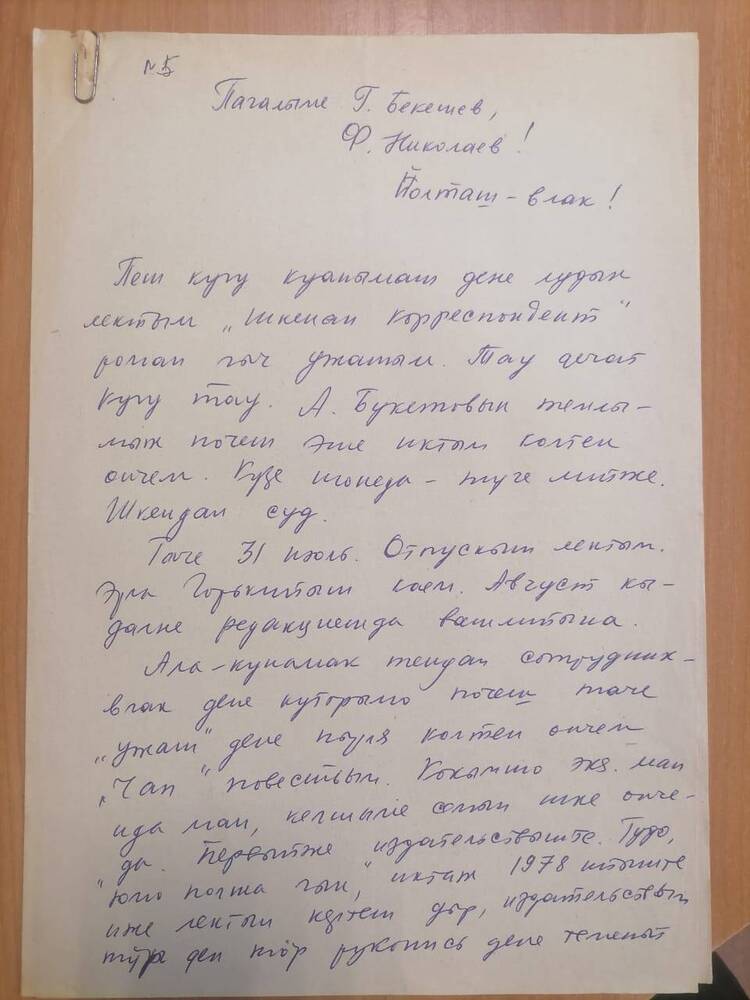 № 5
Пагалыме Г. Бекешев,
Ф. Николаев!
Йолташ-влак!
Пеш кугу куанымаш дене лудын
лектым „Шкенан корреспондент"
роман гыч ужашым. Тау дечат
кугу тау. А. Букетовын темлы-
мыж почеш эше иктым колтен
ончем. Кузе шонеда - туге лийже.
Шкендан суд.
Таче 31 июль. Отпускыш лектым.
Эрла Горькийыш каем. Август кы-
далне редакцийышда вашлийына.
Ала-кунамак тендан сотрудник-
влак дене кутырымо почеш таче
„ужаш" дене пырля колтен ончем
„Чап" повестьым. Кокымшо экз. ман
ида ман, келшыме семын шке онче-
да. Первыйже издательствыште. Тудо,
"юмо полша гын," иктаж 1978 ийыште
иже лектын кертеш дыр, издательствын
рукопись дене темын